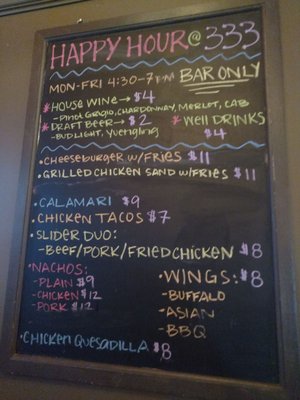 HAPPY HOUR @ 333
MON-FRI 4:30-7PM BAR ONLY
* HOUSE WINE → $4
- PINOT GRIGIO, CHARDONNAY, MERLOT, CAB
* DRAFT BEER → $2
- BUD LIGHT, YUENGLING
* WELL DRINKS
$4
• CHEESEBURGER W/FRIES $11
• GRILLED CHICKEN SAND W/FRIES $11
• CALAMARI $9
• CHICKEN TACOS $7
• SLIDER DUO:
- BEEF/PORK/FRIED CHICKEN $8
• NACHOS:
- PLAIN $9
- CHICKEN $12
- PORK $12
• WINGS: $8
- BUFFALO
- ASIAN
- BBQ
• CHICKEN QUESADILLA $8